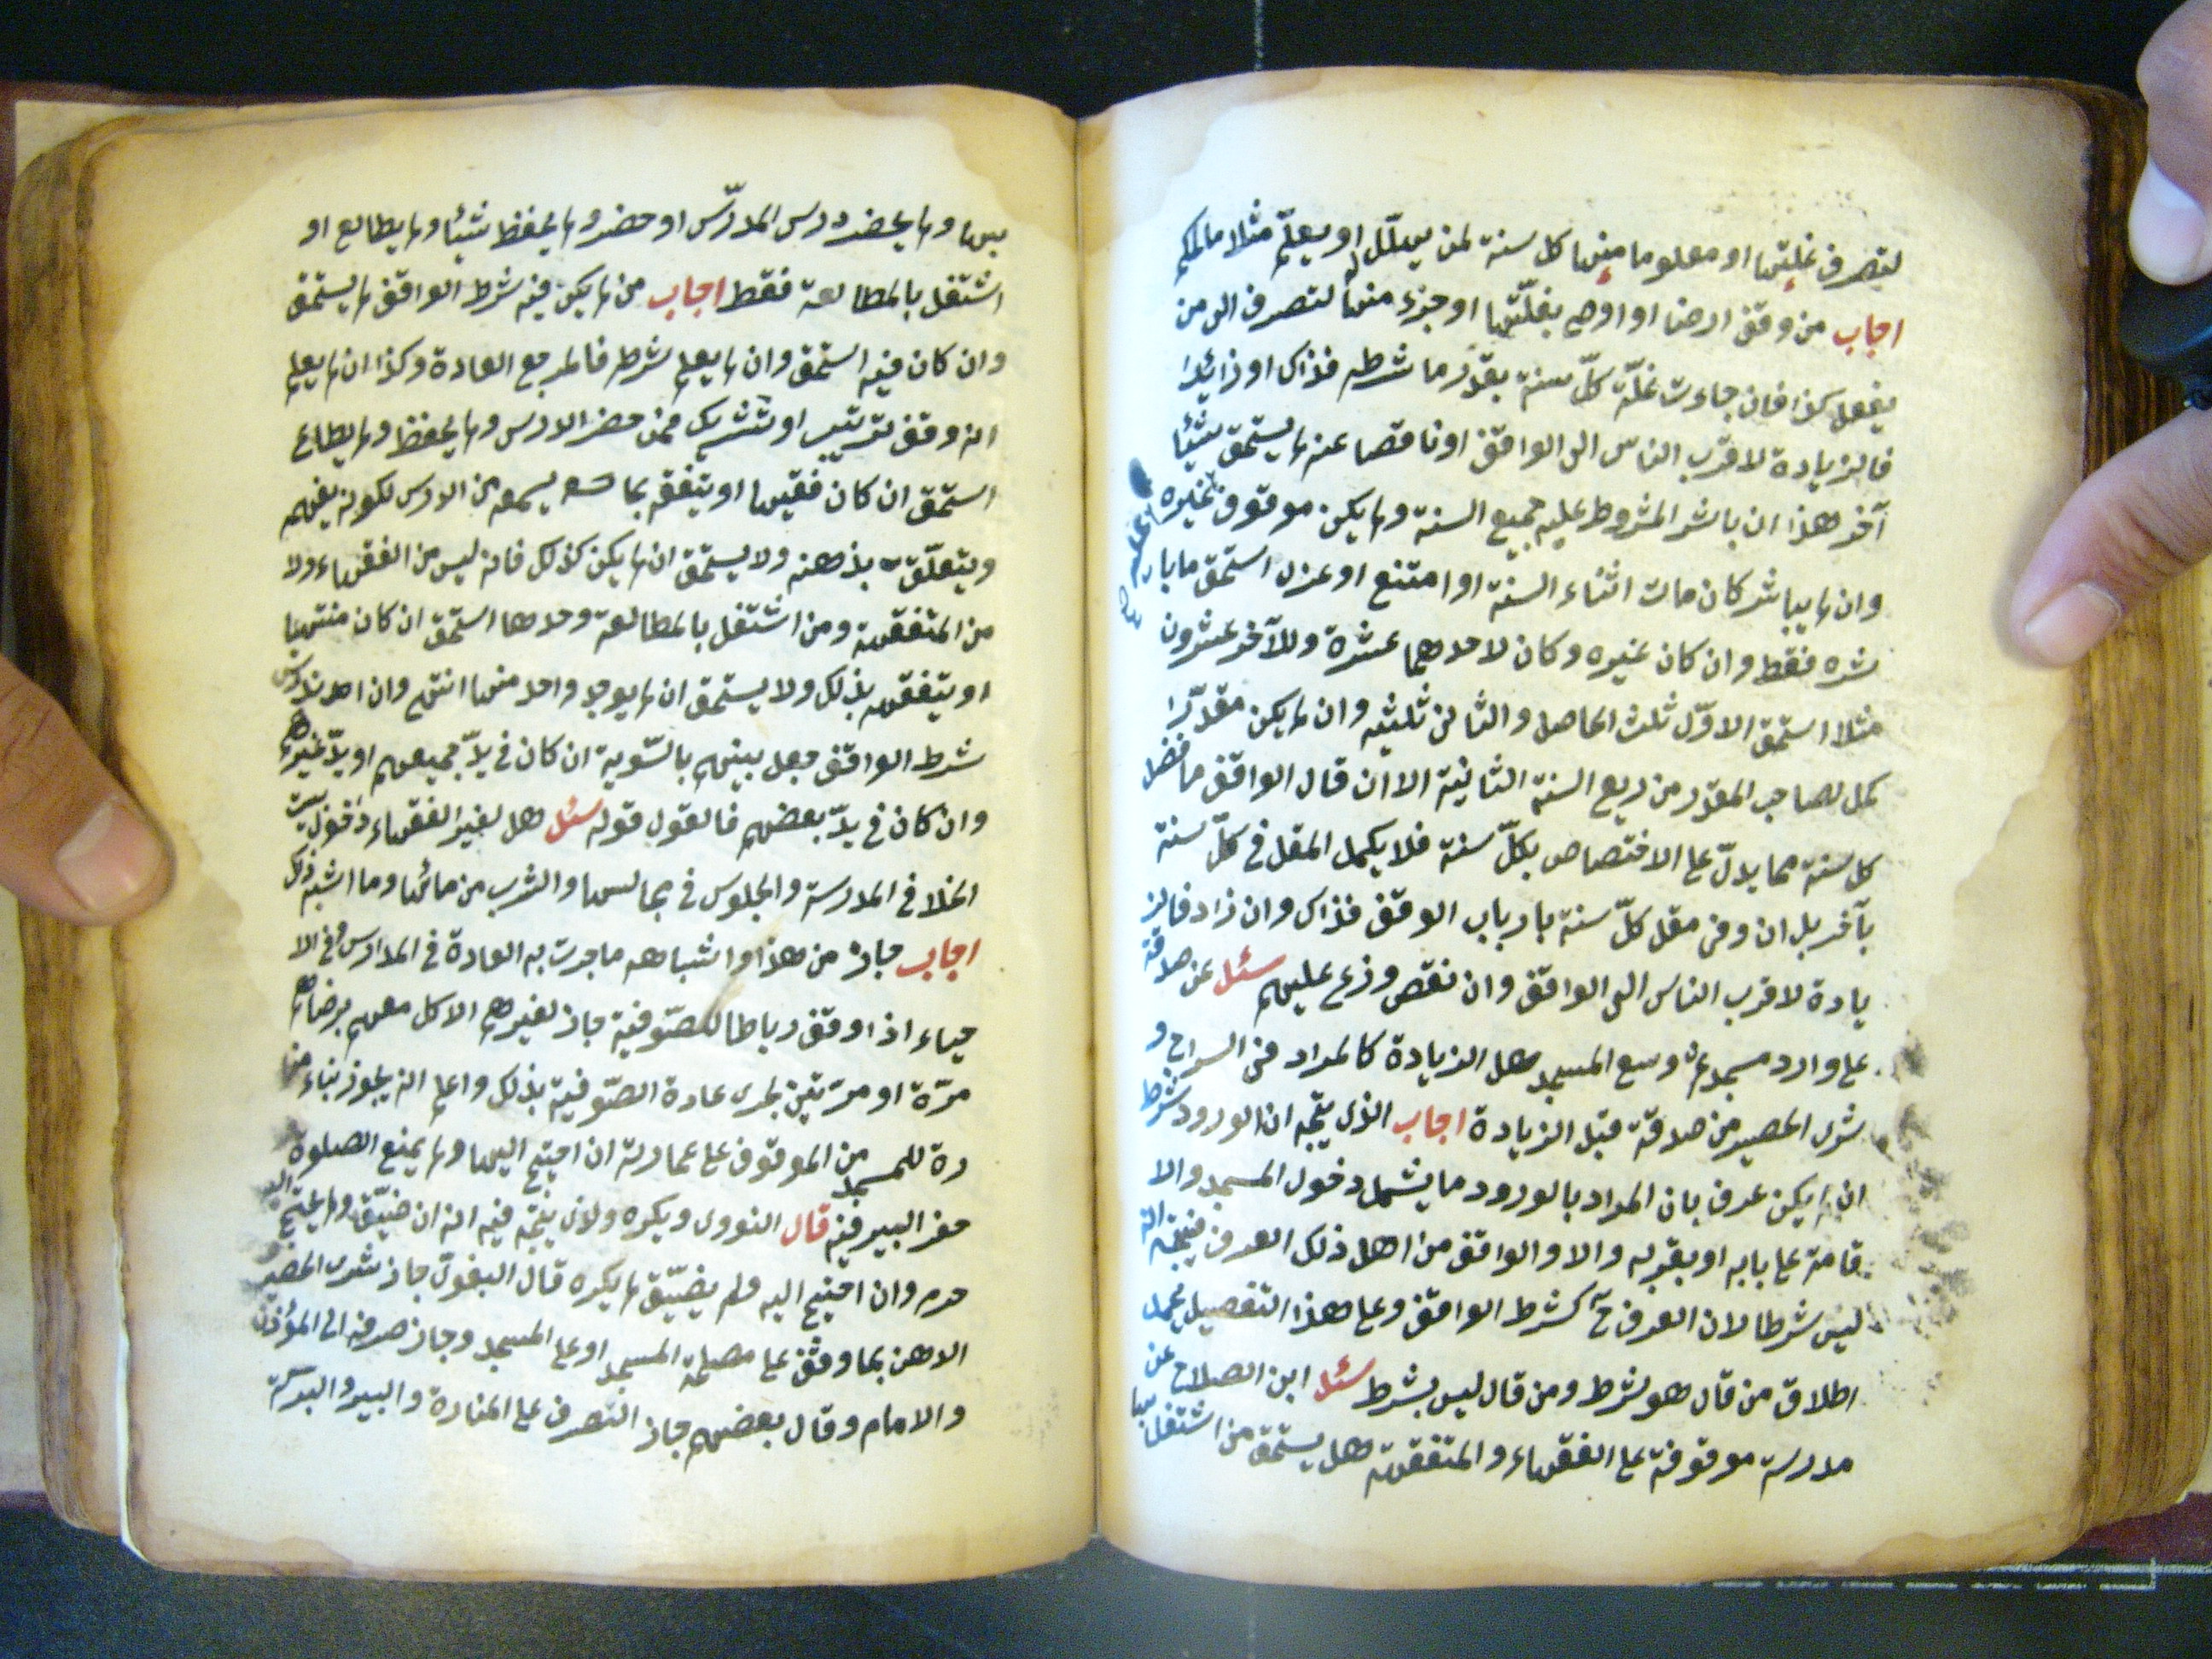 لتصرف غلتها او معلوما منها كل سنة لمن يهلّل او يعلّم مثلا ما لحكم
اجاب من وقف ارضا او اوصى بغلّتها او جزء منها لتصرف الى من
يفعل كذا فان جاءت غلّة كلّ سنة بقدر ما شرطه فذاك او زائدا
فالزيادة لاقرب الناس الى الواقف او ناقصا عنه لم يستحق شيئا
آخر هذا ان باشر المشروط عليه جميع السنة ولم يكن موقوف غيره
وان لم يباشر كان مات اثناء السنة او امتنع او عزل استحق ما با
شره فقط وان كان غيره وكان لاحدهما عشرة وللآخر عشرون
مثلا استحق الاوّل ثلث الحاصل والثانى ثلثيه وان لم يكن مقدّرا
كمل لصاحب المقدر من ريع السنة الثانية الا ان قال الواقف ما فضل
كل سنة مما يدلّ على الاختصاص بكلّ سنة فلا يكمل المقل فى كلّ سنة
بآخر بل ان وفى مقل كلّ سنة بارباب الوقف فذاك وان زاد فالز
يادة لاقرب الناس الى الواقف وان نقص وزع عليهم سئل عن صدقة
على وارد مسجد ثم وسع المسجد هل الزيادة كالمراد فى السراج و
شرى الحصير من صدقة قبل الزيادة اجاب الذى يتّجه ان الورود شرط
ان لم يكن عرف بان المراد بالورود ما يشمل دخول المسجد والا
قامة على بابه او بقربه والا والواقف من اهل ذلك العرف فيتجه انّه
ليس شرطا لان العرف ح كشرط الواقف وعلى هذا التفصيل يحمل
اطلاق من قال هو شرط ومن قال ليس بشرط سئل ابن الصلاح عن
مدرسة موقوفة على الفقهاء والمتفقهة هل يستحق من اشتغل
بها ولم يحضر درس المدرّس او حضر ولم يحفظ شيئا ولم يطالع او
اشتغل بالمطالعة فقط اجاب من لم يكن فيه شرط الواقف لم يستحق
وان كان فيه استحق وان لم يعلم شرطه فالمرجع العادة وكذا ان لم يعلم
انه وقف ترتيب او تشريك فمن حضر الدرس ولم يحفظ ولم يطالع
استحق ان كان فقيها او يتفقه بما يسمعه من الدرس لكونه يفهم
ويتعلّق بذهنه ولا يستحق ان لم يكن كذلك فانه ليس من الفقهاء ولا
من المتفقهة ومن اشتغل بالمطالعة وحدها استحق ان كان منتهيا
او يتفقه بذلك ولا يستحق ان لم يوجد واحد منها انتهى وان اندرس
شرط الواقف جعل بينهم بالسّوية ان كان فى يدّ جميعهم او يدّ غيرهم
وان كان فى يدّ بعضهم فالقول قوله سئل هل لغير الفقهاء دخول بيت
الخلا فى المدرسة والجلوس فى مجالسها والشرب من مائها وما اشبه ذلك
اجاب جاز من هذا واشباهه ما جرت به العادة فى المدارس وفى الا
حياء اذا وقف رباطا للصّوفية جاز لغيرهم الاكل معهم برضاهم
مرّة او مرّتين لجرى عادة الصّوفية بذلك واعلم انه يجوز بناء منا
رة للمسجد من الموقوف على عمارته ان احتيج اليها ولم يمنع الصلوة
حفر البير فيه قال النووى ويكره ولان يتّجه فيه انه ان ضيّق ولم يحتج اليه
حرم وان احتيج اليه ولم يضيّق لم يكره قال البغوىّ جاز شرى الحصير و
الدهن بما وقف على مصلحة المسجد او على المسجد وجاز صرفه الى المؤذن
والامام وقال بعضهم جاز التصرف على المنارة والبير والبركة